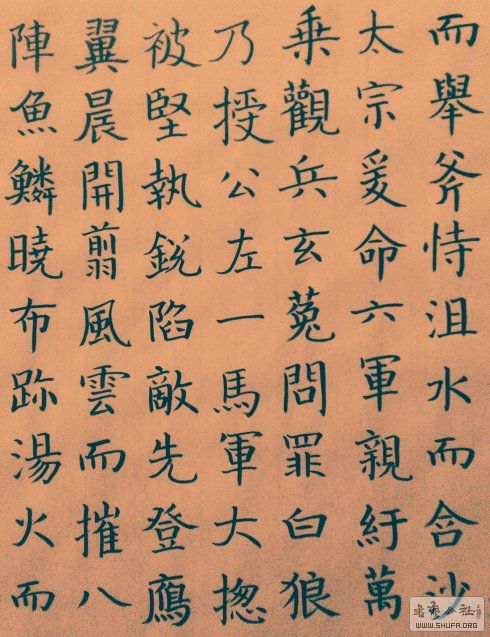 而舉斧恃沮水而含沙
太宗爰命六軍親紆萬
乗觀兵玄菟問罪白狼
乃授公左一馬軍大揔
被堅執銳陷敵先登鷹
翼晨開翦風雲而摧八
陣魚鱗曉布跡湯火而
WWW.SHUFA.ORG